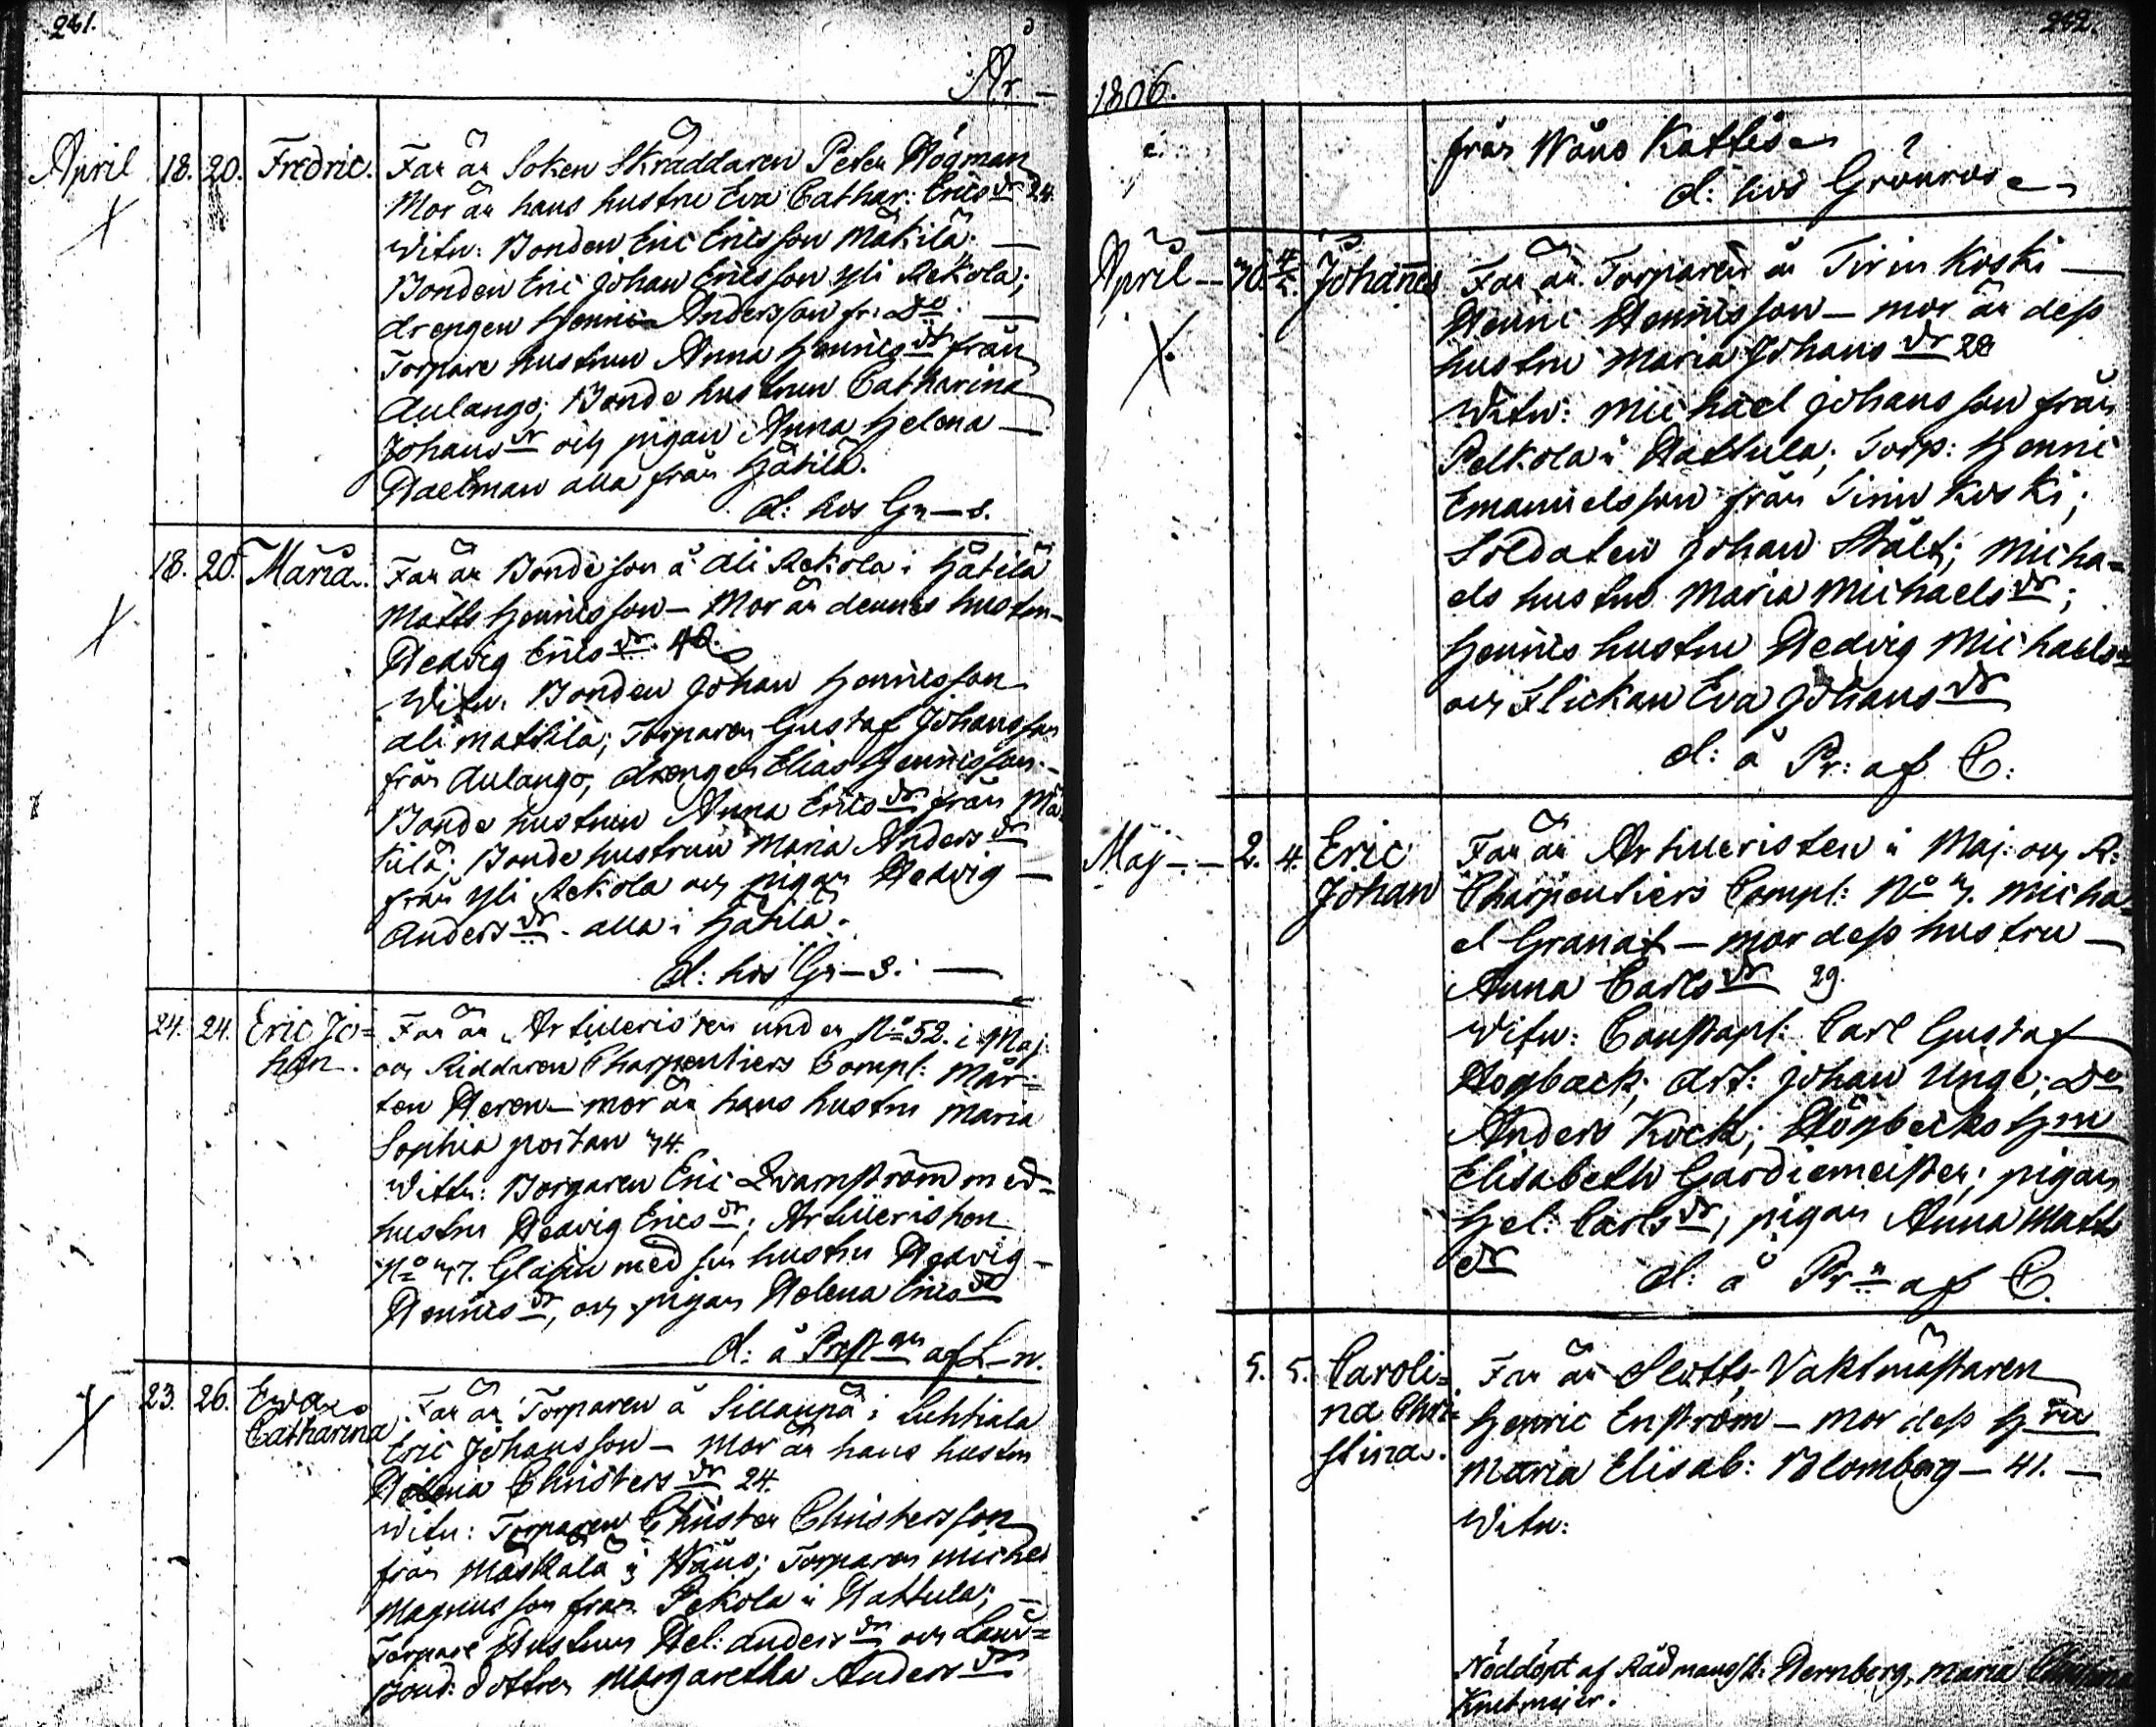 241.
År —
April 18. 20. Fredric. Far är Soken Skräddaren Peter Högman
Mor är hans hustru Eva Cathar: Erics dr 24.
Witn: Bonden Eric Ericsson Mäkilä. —
Bonden Eric Johan Ericsson Yli Rekola;
drengen Henric Andersson fr: Do. —
Torpare hustrun Anna Henrics dr från
Aulango; Bonde hustrun Catharina
Johans dr och pigan Anna Helena —
alla från Hätilä.
d: hos Gr—s.
18. 20. Maria. Far är Bondeson å Ali Rekola i Hätilä
Matts Henricsson — Mor är dennes hustru
Hedvig Erics dr 40.
Witn. Bonden Johan Henricsson
Ali Mattila; Torparen Gustaf Johansson
från Aulango, drengen Elias Henricsson. —
Bonde hustrun Anna Erics dr från Mä
kilä; Bonde hustrun Maria Anders dr
från Yli Rekola och pigan Hedvig —
Anders dr. alla i Hätilä.
d: hos Gr—s. —
24. 24. Eric Jo= Far är Artilleristen under No 52. i Maj:
han. och Riddaren Charpentiers Compl: Mår=
ten Heron — mor är hans hustru Maria
Sophia 74.
Wittn: Borgaren Eric Qvarnström med=
hustru Hedvig Erics dr; Artilleristen
No 77. Glasin med sin hustru Hedvig —
Henrics dr, och pigan Helena Erics dr
d: å Prest gn af L—n.
23. 26. Eva Far är Torparen å Sillanpä i Luhtiala
Catharina Eric Johansson — Mor är hans hustru
Helena Christers dr 24.
Witn: Torparen Christer Christersson
från Mäskälä i Wånå; Torparen Michel
Magnusson från Pekola i Hattula; —
Torpare Hustrun Hel: Anders dr och Land=
bond: dottren Margaretha Anders dr
242.
1806.
från Wånå Kattisen
d: hos Grönroos
April — 30. 4/5. Johannes Far är Torparen å Tirinkoski —
Henric Henricsson — mor är dess
hustru Maria Johans dr 28
Witn: Michael Johansson från
Pelkola i Hattula; Torp: Henric
Emanuelsson från Tirinkoski;
Soldaten Johan Stålt; Micha=
els hustru Maria Michaels dr;
Henrics hustru Hedvig Michaels dr
och Flickan Eva Johans dr
d: å Pr: af C:
Maj — — 2. 4. Eric Far är Artilleristen i Maj: och R:
Johan Charpentiers Compl: No 7. Micha=
el Granat — mor dess hustru —
Anna Carls dr 29.
Witn: Constapl: Carl Gustaf
Högback; Art: Johan Unge; Do
Anders Kock; Högbecks H ru
Elisabeth Gardiemeister; pigan
Hel: Carls dr, pigan Anna Matts
dr d: å Pr n af C.
5. 5. Caroli= Far är Slotts Vaktmästaren
na Chri= Henric Enström — Mor dess H ru
stina. Maria Elisab: Blomberg — 41. —
Witn:
Nöddöpt af Rådmansk: Hernberg, Maria